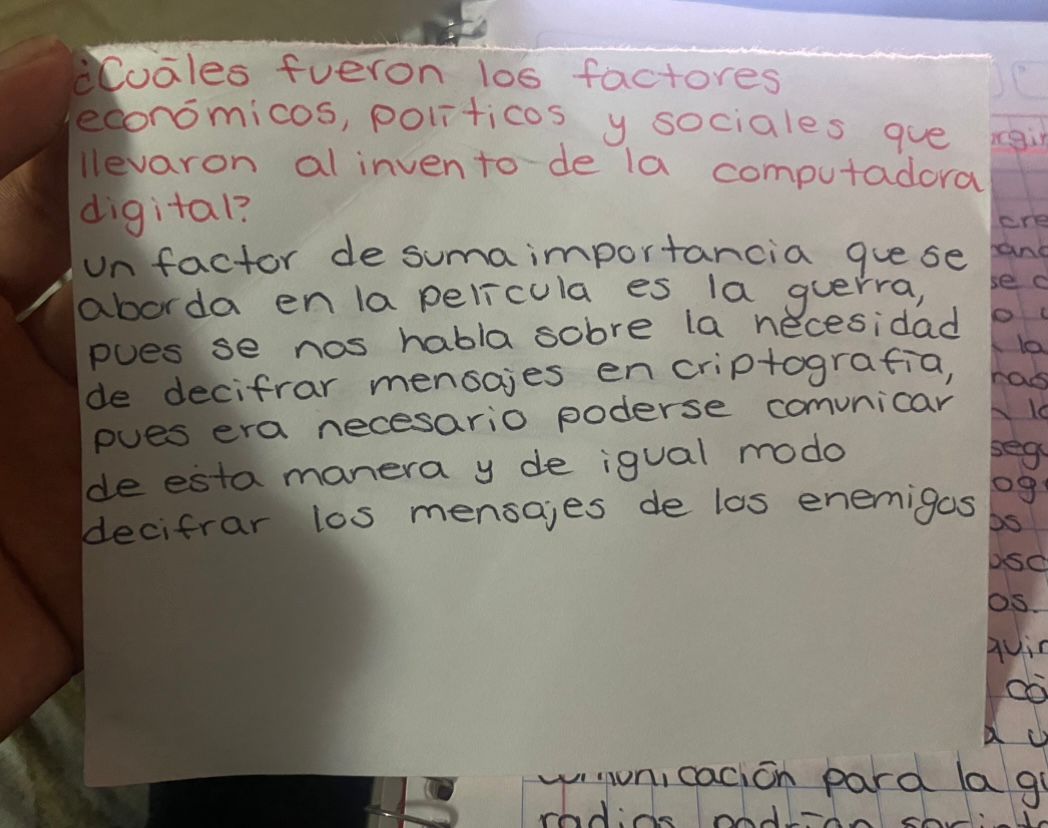 ¿Cuáles fueron los factores
económicos, políticos y sociales que
llevaron al invento de la computadora
digital?
un factor de suma importancia que se
aborda en la película es la guerra,
pues se nos habla sobre la necesidad
de decifrar mensajes en criptografía,
pues era necesario poderse comunicar
de esta manera y de igual modo
decifrar los mensajes de los enemigos
para la